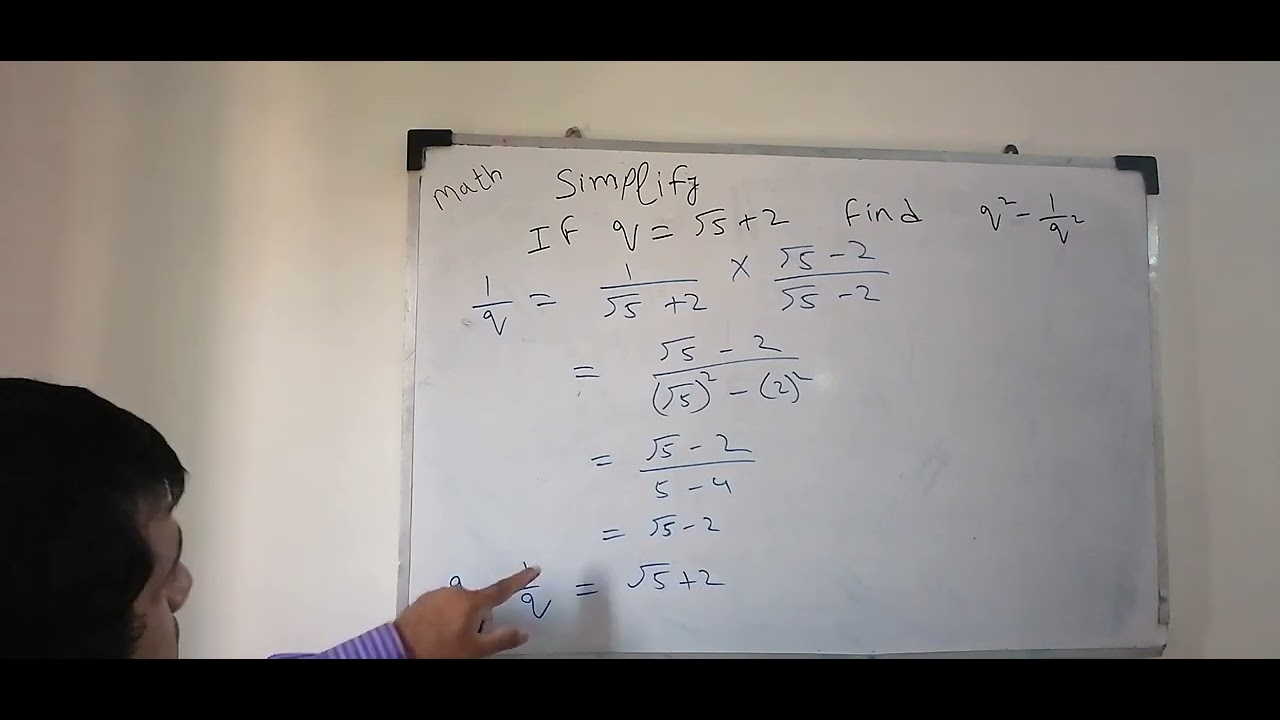 math Simplify
If q = √5 + 2 Find q² - 1/q²
1/q = 1/(√5 + 2) × (√5 - 2)/(√5 - 2)
= (√5 - 2)/((√5)² - (2)²)
= (√5 - 2)/(5 - 4)
= √5 - 2
1/q = √5 + 2